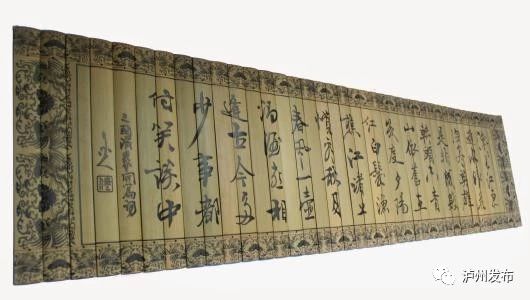 是非成敗
轉頭空青
山依舊在
幾度夕陽
紅白髮漁
樵江渚上
慣看秋月
春風一壺
濁酒喜相
逢古今多
少事都
付笑談中
三國演義開篇詞
泸州发布